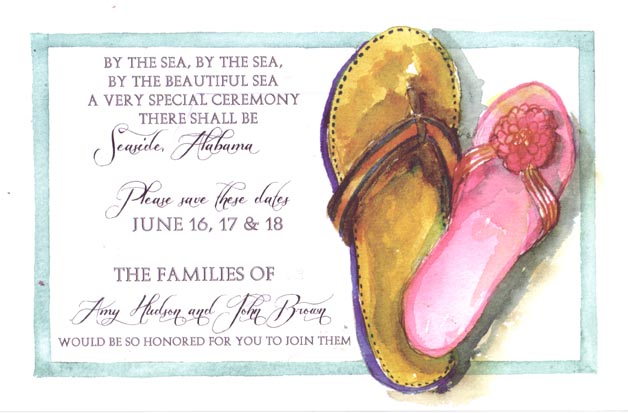 BY THE SEA, BY THE SEA,
BY THE BEAUTIFUL SEA
A VERY SPECIAL CEREMONY
THERE SHALL BE
Seaside, Alabama
Please save these dates
JUNE 16, 17 & 18
THE FAMILIES OF
Amy Hudson and John Brown
WOULD BE SO HONORED FOR YOU TO JOIN THEM